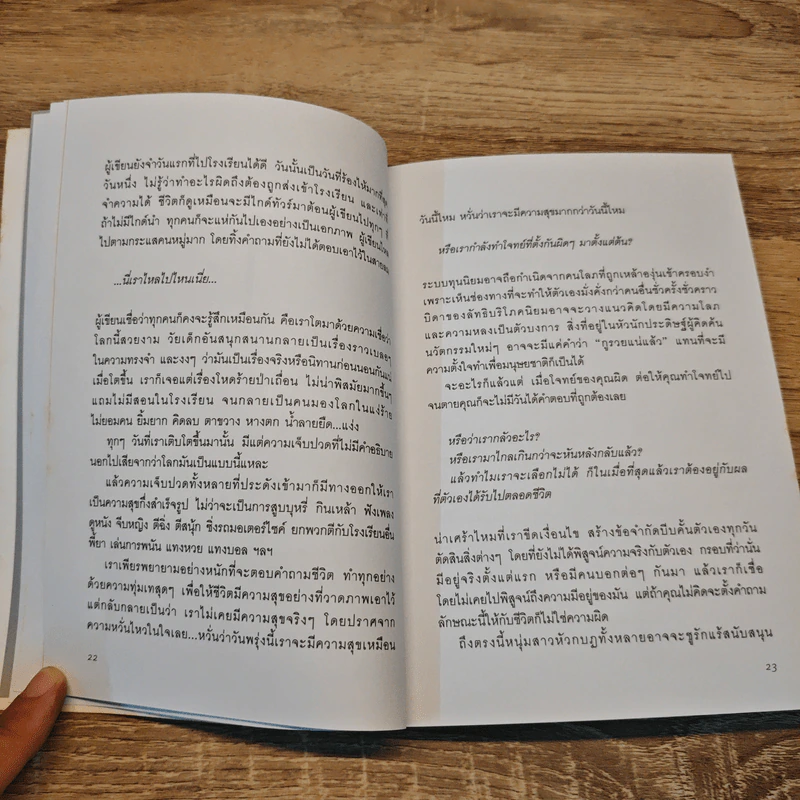 ผู้เขียนยังจำวันแรกที่ไปโรงเรียนได้ดี วันนั้นเป็นวันที่ร้องไห้มากที่สุด
วันหนึ่ง ไม่รู้ว่าทำอะไรผิดถึงต้องถูกส่งเข้าโรงเรียน และเท่าที่
จำความได้ ชีวิตก็ดูเหมือนจะมีไกด์ทัวร์มาต้อนผู้เขียนไปทุกๆ ที่
ถ้าไม่มีไกด์นำ ทุกคนก็จะแห่กันไปเองอย่างเป็นเอกภาพ
ไปตามกระแสคนหมู่มาก โดยทิ้งคำถามที่ยังไม่ได้ตอบเอาไว้ใน
...นี่เราไหลไปไหนเนี่ย...
ผู้เขียนเชื่อว่าทุกคนก็คงจะรู้สึกเหมือนกัน คือเราโตมาด้วยความเชื่อว่า
โลกนี้สวยงาม วัยเด็กอันสนุกสนานกลายเป็นเรื่องราวเบลอๆ
ในความทรงจำ และงงๆ ว่ามันเป็นเรื่องจริงหรือนิทานก่อนนอนกันแน่
เมื่อโตขึ้น เราก็เจอแต่เรื่องโหดร้ายป่าเถื่อน ไม่น่าพิสมัยมากขึ้นๆ
แถมไม่มีสอนในโรงเรียน จนกลายเป็นคนมองโลกในแง่ร้าย
ไม่ยอมคน ยิ้มยาก คิดลบ ตาขวาง หางตก น้ำลายยืด...แง่ง
ทุกๆ วันที่เราเติบโตขึ้นมานั้น มีแต่ความเจ็บปวดที่ไม่มีคำอธิบาย
นอกไปเสียจากว่าโลกมันเป็นแบบนี้แหละ
แล้วความเจ็บปวดทั้งหลายที่ประดังเข้ามาก็มีทางออกให้เรา
เป็นความสุขกึ่งสำเร็จรูป ไม่ว่าจะเป็นการสูบบุหรี่ กินเหล้า ฟังเพลง
ดูหนัง จีบหญิง ตีฉิ่ง ตีสนุ้ก ซิ่งรถมอเตอร์ไซค์ ยกพวกตีกับโรงเรียนอื่น
พี้ยา เล่นการพนัน แทงหวย แทงบอล ฯลฯ
เราเพียรพยายามอย่างหนักที่จะตอบคำถามชีวิต ทำทุกอย่าง
ด้วยความทุ่มเทสุดๆ เพื่อให้ชีวิตมีความสุขอย่างที่วาดภาพเอาไว้
แต่กลับกลายเป็นว่า เราไม่เคยมีความสุขจริงๆ โดยปราศจาก
ความหวั่นไหวในใจเลย...หวั่นว่าวันพรุ่งนี้เราจะมีความสุขเหมือน
22
วันนี้ไหม หวั่นว่าเราจะมีความสุขมากกว่าวันนี้ไหม
หรือเรากำลังทำโจทย์ที่ตั้งกันผิดๆ มาตั้งแต่ต้น?
ระบบทุนนิยมอาจถือกำเนิดจากคนโลภที่ถูกเหล้าองุ่นเข้าครอบงำ
เพราะเห็นช่องทางที่จะทำให้ตัวเองมั่งคั่งกว่าคนอื่นชั่วครั้งชั่วคราว
บิดาของลัทธิบริโภคนิยมอาจจะวางแนวคิดโดยมีความโลภ
และความหลงเป็นตัวบงการ สิ่งที่อยู่ในหัวนักประดิษฐ์ผู้คิดค้น
นวัตกรรมใหม่ๆ อาจจะมีแค่คำว่า “กูรวยแน่แล้ว” แทนที่จะมี
ความตั้งใจทำเพื่อมนุษยชาติก็เป็นได้
จะอะไรก็แล้วแต่ เมื่อโจทย์ของคุณผิด ต่อให้คุณทำโจทย์ไป
จนตายคุณก็จะไม่มีวันได้คำตอบที่ถูกต้องเลย
หรือว่าเรากลัวอะไร?
หรือเรามาไกลเกินกว่าจะหันหลังกลับแล้ว?
แล้วทำไมเราจะเลือกไม่ได้ ก็ในเมื่อที่สุดแล้วเราต้องอยู่กับผล
ที่ตัวเองได้รับไปตลอดชีวิต
น่าเศร้าไหมที่เราขีดเงื่อนไข สร้างข้อจำกัดบีบคั้นตัวเองทุกวัน
ตัดสินสิ่งต่างๆ โดยที่ยังไม่ได้พิสูจน์ความจริงกับตัวเอง กรอบที่ว่านั่น
มีอยู่จริงตั้งแต่แรก หรือมีคนบอกต่อๆ กันมา แล้วเราก็เชื่อ
โดยไม่เคยไปพิสูจน์ถึงความมีอยู่ของมัน แต่ถ้าคุณไม่คิดจะตั้งคำถาม
ลักษณะนี้ให้กับชีวิตก็ไม่ใช่ความผิด
ถึงตรงนี้หนุ่มสาวหัวกบฏทั้งหลายอาจจะชูรักแร้สนับสนุน
23